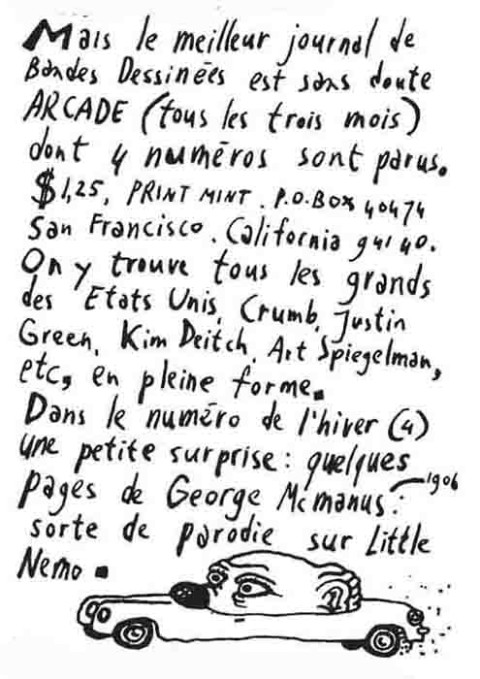 Mais le meilleur journal de
Bandes Dessinées est sans doute
ARCADE (tous les trois mois)
dont 4 numéros sont parus.
$1,25, PRINT MINT. P.O.BOX 40474
San Francisco. California 94140.
On y trouve tous les grands
des Etats Unis, Crumb, Justin
Green, Kim Deitch, Art Spiegelman,
etc, en pleine forme.
Dans le numéro de l'hiver (4)
une petite surprise: quelques
pages de George McManus: 1906
sorte de parodie sur Little
Nemo.